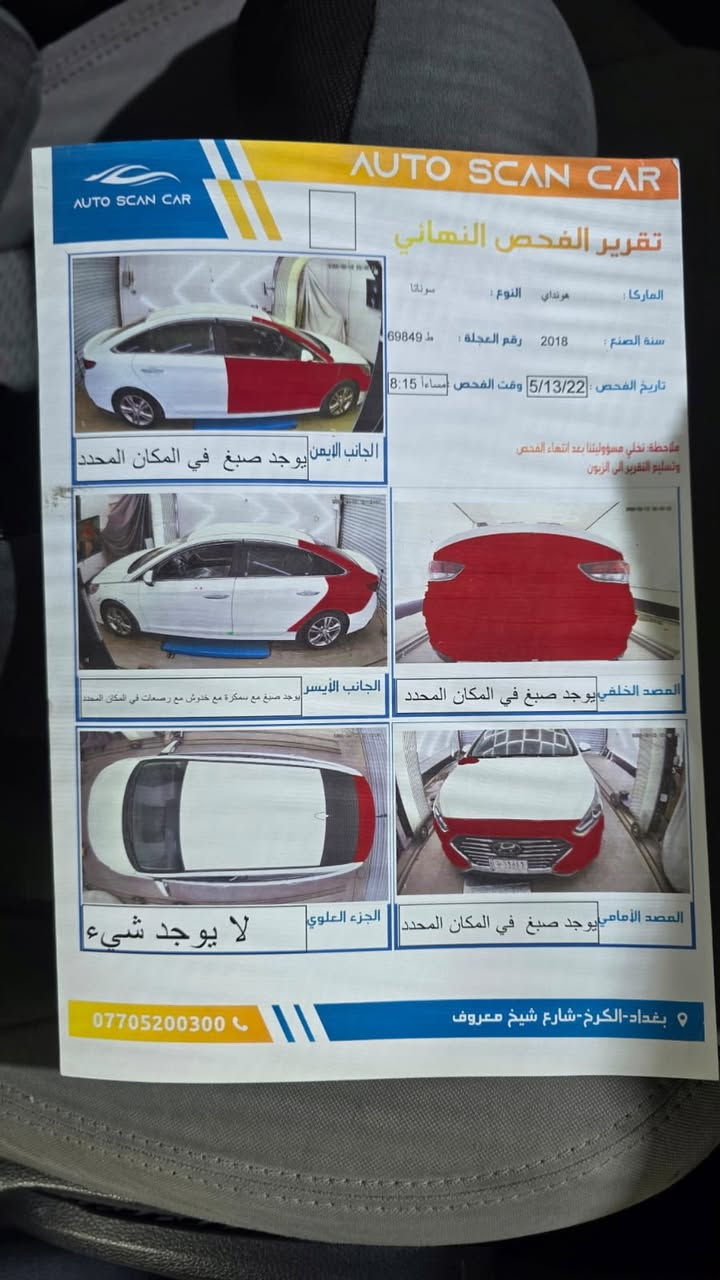 AUTO SCAN CAR
AUTO SCAN CAR
تقرير الفحص النهائي
الماركا : هونداي النوع : سوناتا
سنة الصنع : 2018 رقم العجلة : ط 69849
تاريخ الفحص : 5/13/22 وقت الفحص : 8:15 مساءا
ملاحظة: تخلي مسؤوليتنا بعد انتهاء الفحص
وتسليم التقرير الى الزبون
الجانب الأيمن يوجد صبغ في المكان المحدد
الجانب الأيسر يوجد صبغ مع سمكرة مع خدوش مع رصعات في المكان المحدد
المصد الخلفي يوجد صبغ في المكان المحدد
الجزء العلوي لا يوجد شيء
المصد الأمامي يوجد صبغ في المكان المحدد
بغداد-الكرخ-شارع شيخ معروف
07705200300